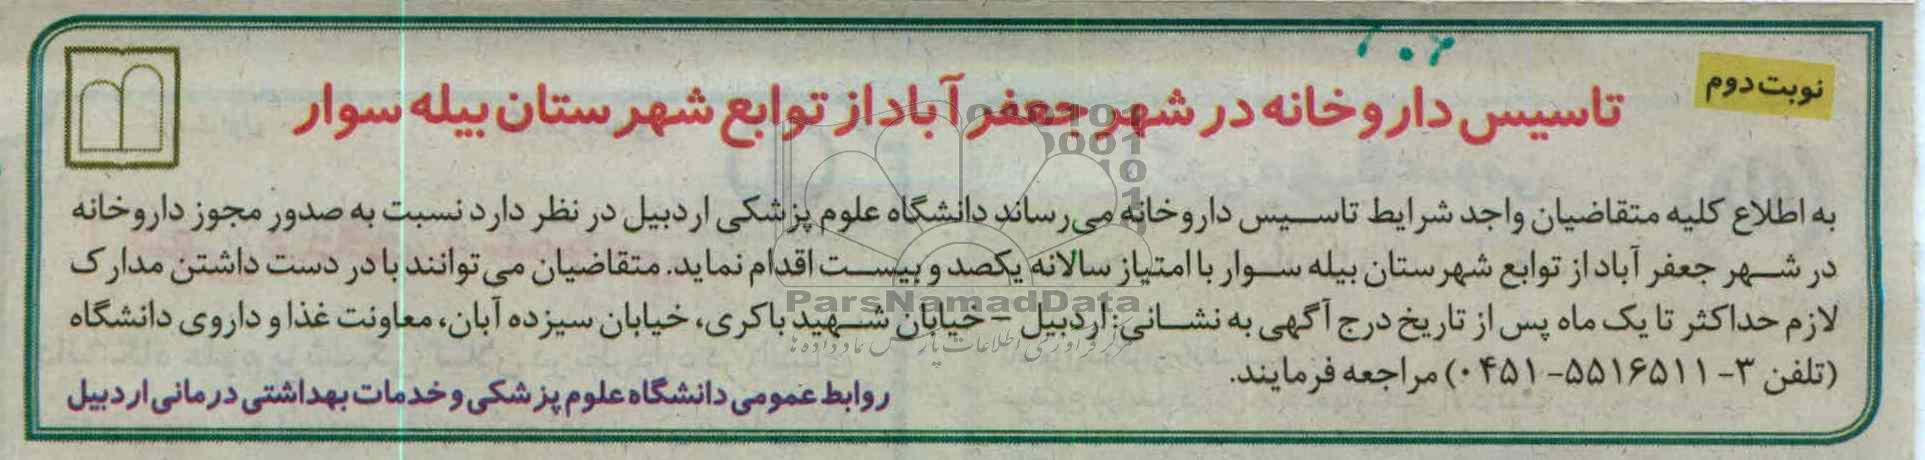 ۲۰۲
نوبت دوم
تاسیس داروخانه در شهر جعفر آباد از توابع شهرستان بیله سوار
به اطلاع کلیه متقاضیان واجد شرایط تاسیس داروخانه می‌رساند دانشگاه علوم پزشکی اردبیل در نظر دارد نسبت به صدور مجوز داروخانه
در شهر جعفر آباد از توابع شهرستان بیله سوار با امتیاز سالانه یکصد و بیست اقدام نماید. متقاضیان می‌توانند با در دست داشتن مدارک
لازم حداکثر تا یک ماه پس از تاریخ درج آگهی به نشانی: اردبیل – خیابان شهید باکری، خیابان سیزده آبان، معاونت غذا و داروی دانشگاه
(تلفن ۳- ۵۵۱۶۵۱۱-۰۴۵۱) مراجعه فرمایند.
روابط عمومی دانشگاه علوم پزشکی و خدمات بهداشتی درمانی اردبیل
ParsNamadData
مرکز فرآوری اطلاعات پارس نماد داده‌ها